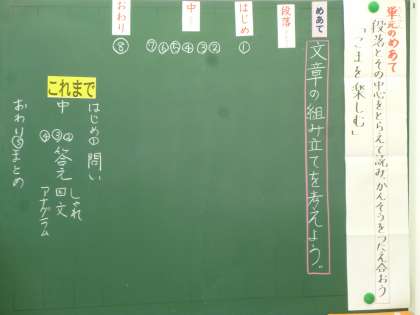 単元のめあて
段落とその中心をとらえて読み、かんそうをつたえ合おう
「こまを楽しむ」
めあて
文章の組み立てを考えよう。
段落…
はじめ
①
中…
②③④⑤⑥⑦
おわり
⑧
これまで
はじめ① 問い
中 ②③④ 答え
しゃれ
回文
アナグラム
おわり⑤まとめ